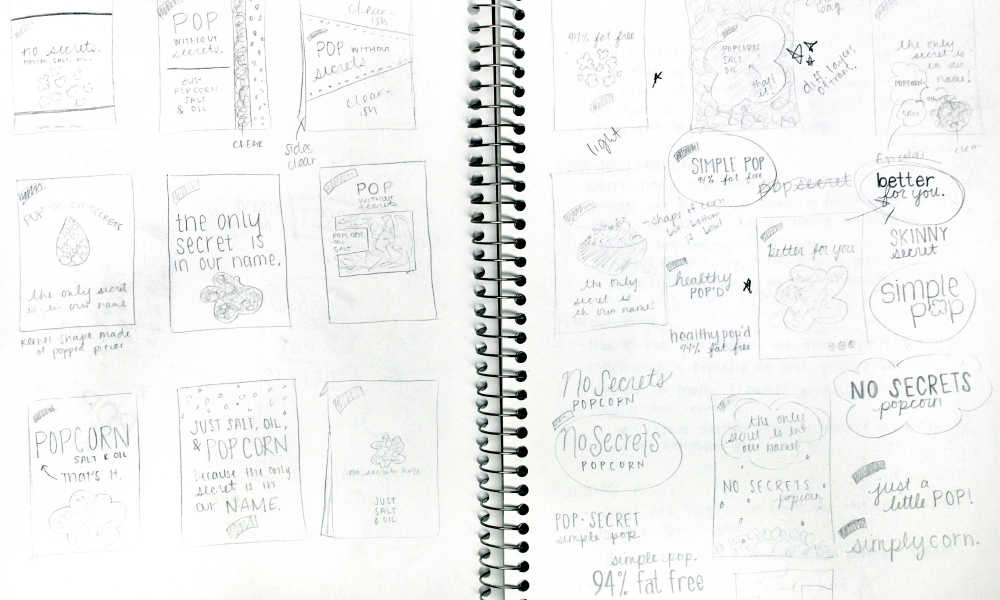 no secrets.
POPCORN. SALT. OIL.
POP
WITHOUT
secrets.
JUST
POPCORN
SALT
& OIL
CLEAR
clear-
ish
POP WITHOUT
secrets
clear-
ish
sides
clear
POP WITHOUT SECRETS
the only secret
is in our name
kernel shape made
of popped pieces
the only
secret is
in our name.
POP
WITHOUT
secrets
POPCORN
OIL
SALT
POPCORN
SALT & OIL
THAT'S IT.
JUST SALT, OIL,
& POPCORN
because the only
secret is in
our NAME.
no secrets here
JUST
SALT
& OIL
94% fat free
light
POPCORN
SALT
OIL
that's
it!
bag
diff layers
of trans.
the only
secret is
in our
name!
POPCORN
SALT
OIL
clear
SIMPLE POP
94% fat free
pop secret
better
for you.
- shape of corn
but bottom
is bowl
the only
secret is
in our name!
healthy
POP'D
better for you
SKINNY
secret
simple
pop
healthy pop'd
94% fat free
No Secrets
POPCORN
No Secrets
POPCORN
the only
secret is in
our name!
NO SECRETS
popcorn
NO SECRETS
popcorn
POP · SECRET
simple pop.
just a
little POP!
simply corn.
simple.pop.
94% fat free